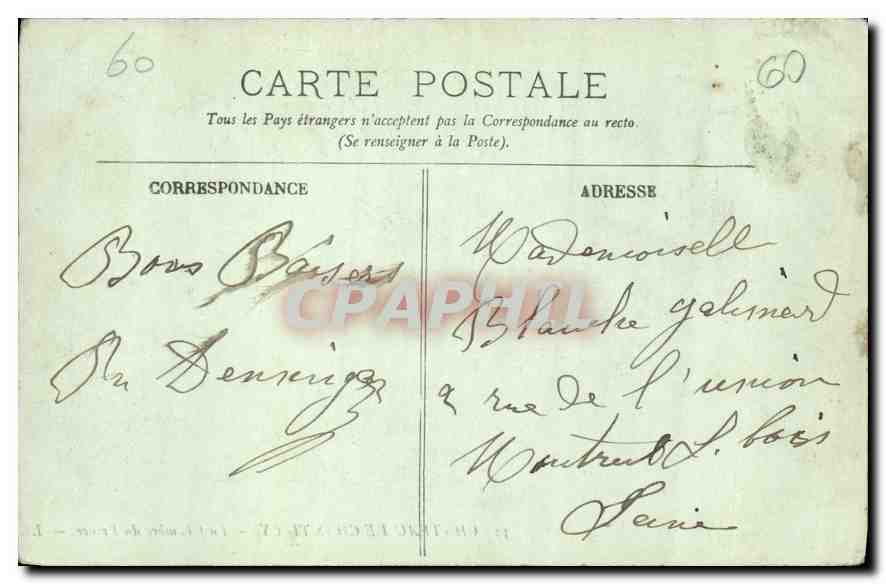 60
60
CARTE POSTALE
Tous les Pays étrangers n'acceptent pas la Correspondance au recto.
(Se renseigner à la Poste).
CORRESPONDANCE
Bons Baisers
ADRESSE
Mademoiselle
Blanche galimard
rue de l'union
Montreuil S. bois
Seine
CPAPHIL